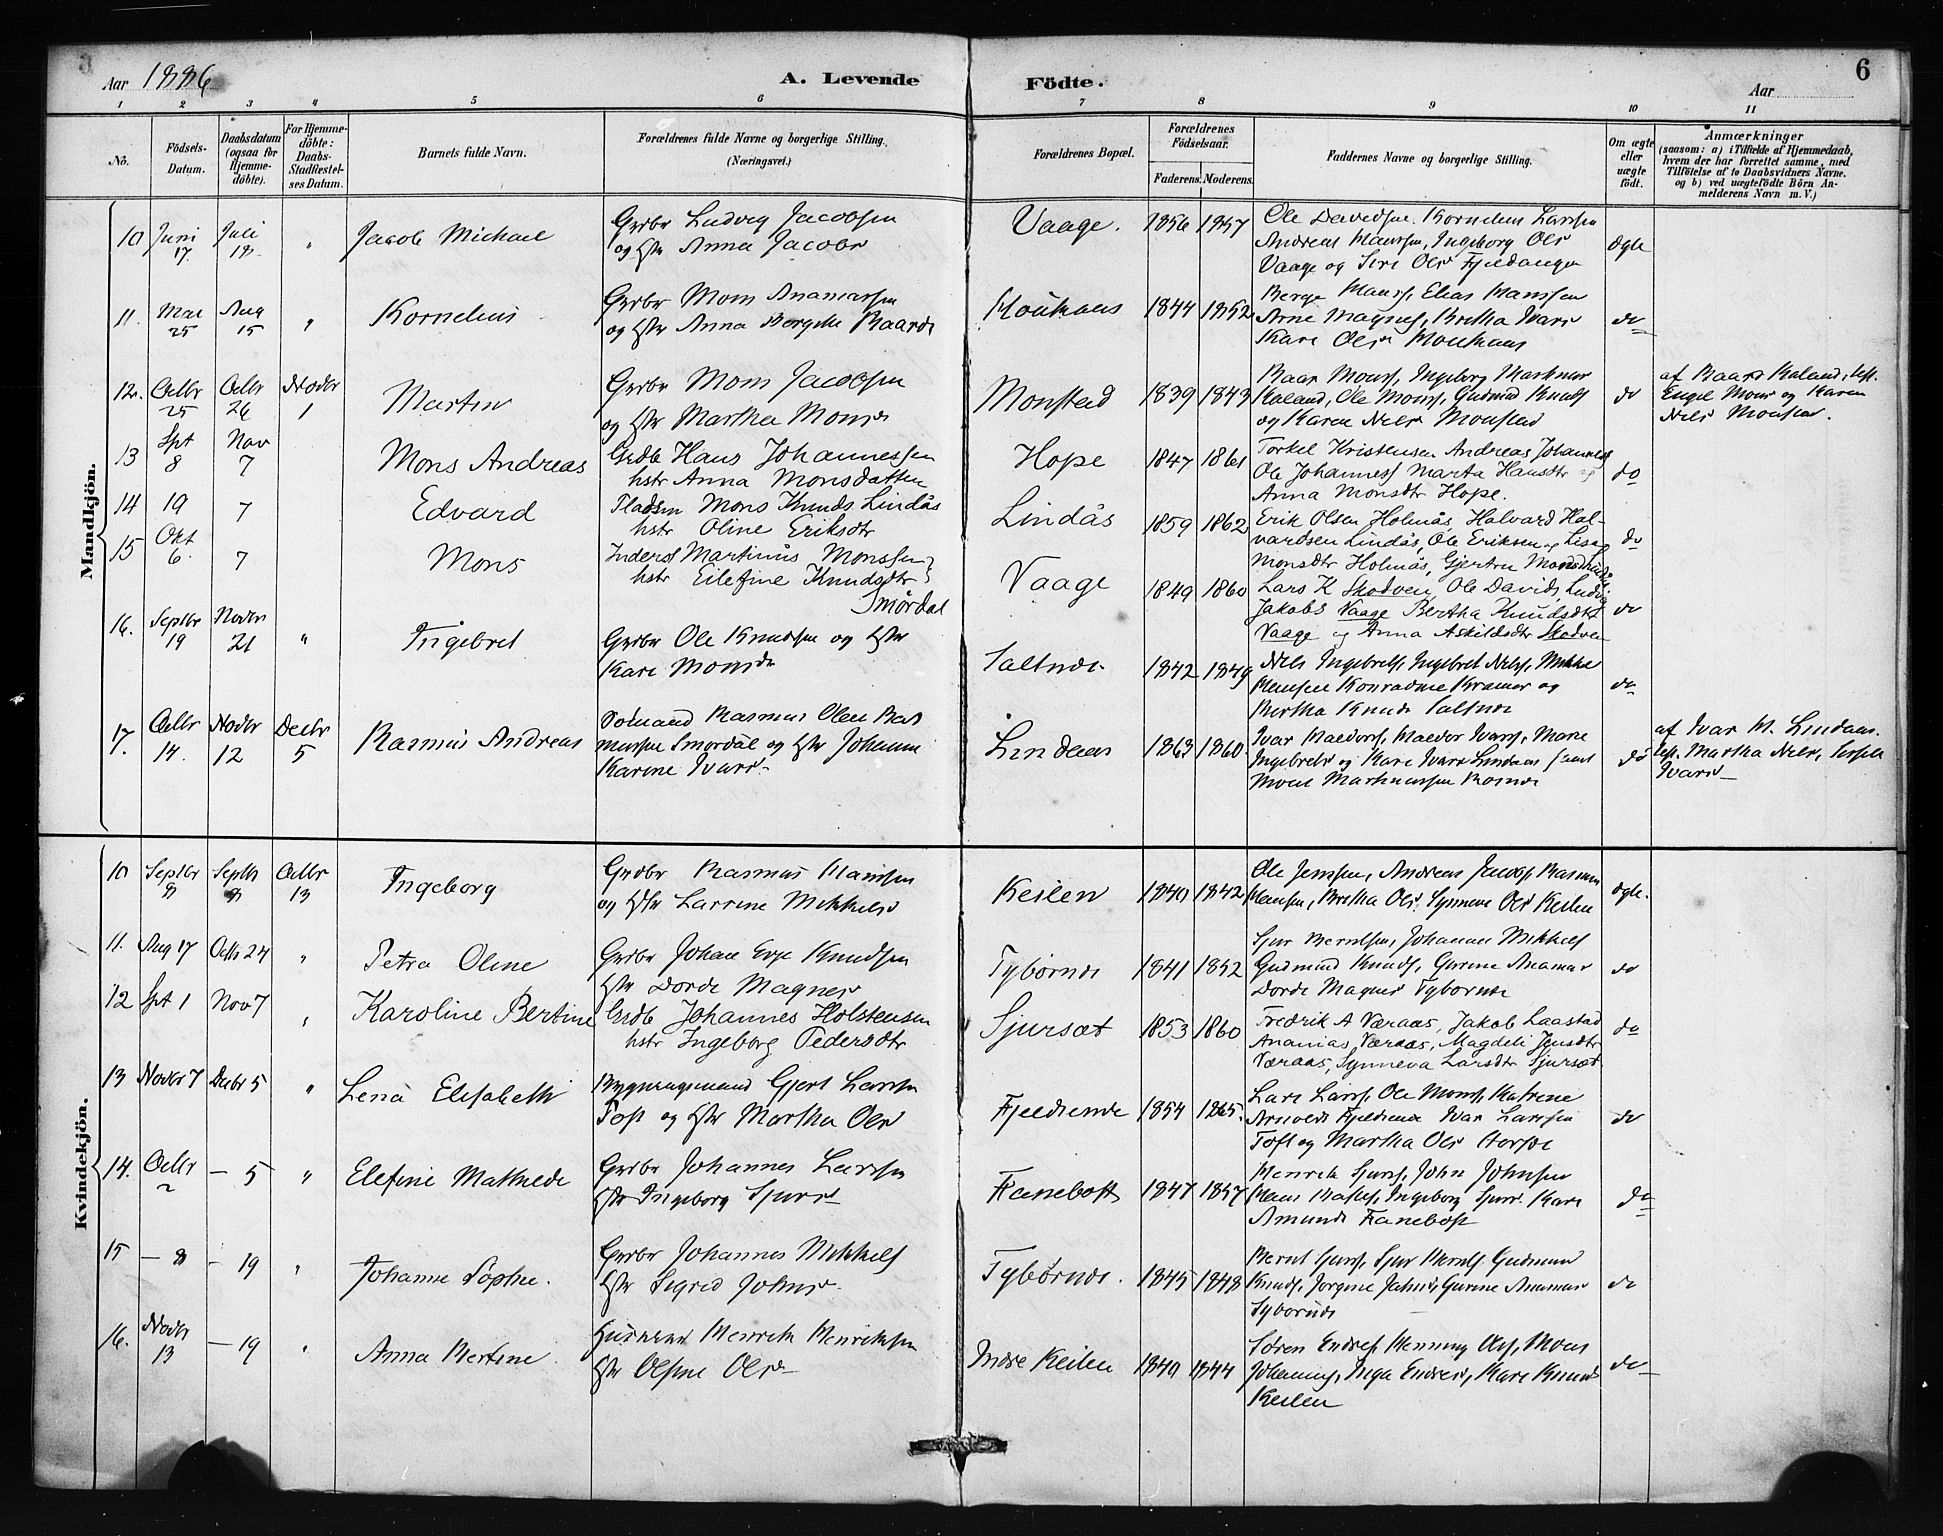 Aar 1886
A. Levende Födte.
6
Aar
1 2 3 4 5 6 7 8 9 10 11
No.
Födsels-Datum.
Daabsdatum (ogsaa for Hjemme-döbte).
For Hjemme-döbte: Daabs-Stadfæstel-ses Datum.
Barnets fulde Navn.
Forældrenes fulde Navne og borgerlige Stilling. (Næringsvei.)
Forældrenes Bopæl.
Forældrenes Födselsaar.
Faderens. Moderens.
Faddernes Navne og borgerlige Stilling.
Om ægte eller uægte födt.
Anmærkninger
(saasom: a) i Tilfælde af Hjemmedaab, hvem der har forrettet samme, med Tilföielse af to Daabsvidners Navne. og b) ved uægtefödte Börn An-melderens Navn m.V.)
Mandkjön.
10 Juni 17 Juli 18 " Jacob Michael
Grdbr Ludvig Jacobsen
og Hstr Anna Jacobs
Vaage. 1856 1857
Ole Davidsen. Kornelius Larsen
Andreas Monssen, Ingeborg Olsd
Vaage og Siri Olsd Fjeldanger
ægte
11. Mai 25 Aug 15 " Kornelius
Grdbr Mons Anamarsen
og Hstr Anna Bergitte Baards
1844 1852
Elias Hanssen
Arne Magnes, Bretha Ivars
Kari Olsd
do
12. Octbr 25 Octbr 26 Novbr 1 Martin
Grdbr Mons Jacobsen
og Hstr Martha Monsd
Monstad 1839 1843
Baar Mons, Ingeborg
Ole Mons, Gudmund Knuds
og Karen Nels Monstad
do
af Baard
Engel Mons og Karen
Nels Monstad.
13 Spt 8 Nov 7 Mons Andreas
Grdb Hans Johannessen
hstr Anna Monsdatter
Hope 1847 1861
Torkel Kristensen Andreas Johannes
Ole Johanness Marta Hansdtr og
Anna Monsdtr Hope.
do
14 19 7 Edvard
Pladsm Mons Knuds Lindås
hstr Oline Eriksdtr
Lindås 1859 1862
Erik Olsen Holmås, Halvard Hal-
vardsen Lindås, Ole Eriksen og Lisa
Monsdtr Holmås, Gjertru
do
15 Okt 6 7 Mons
Inderst Martinus Monssen
hstr Eilefine Knudsdtr
Smørdal
Vaage 1849 1860
Lars K Skodven, Ole Davids, Ludvig
Jakobs Vaage Bertha Knudsdtr
Vaage og Anna Askildsdtr Skodven
do
16. Septbr 19 Novbr 21 " Ingebret
Grdbr Ole Knudsen og Hstr
Kari Monsd
1842 1849
Nels Ingebrets, Ingebret Nels,
Hansen Konradine Kramer og
Bertha Knuds
do
17. Octbr 14. Novbr 12 Decbr 5 Rasmus Andreas
Sömand Rasmus Olai Ras
mussen Smördal og Hstr Johanne
Karine Ivars
Lindaas 1863 1860.
Ivars, Marie
Ingebrets og Kari Ivars Lindaas samt
Mons Martinussen
do
af Ivar H. Lindaas.
test. Martha Nels,
Ivars
Kvindekjön.
10 Septbr 8 Septbr 8 Octbr 13 Ingeborg
Grdbr Rasmus Hanssen
og Hstr Larsine Mikkels
Keilen 1840 1842
Ole Jenssen, Andreas Jacobs, Rasmus
Hansen, Bretha Ols Synneve Ols Keilen
ægte.
11. Aug 17 Octb 24 " Petra Oline
Grdbr Johan Knudsen
Hstr Dorde Magnes
Tybørnds 1841 1852
Sjur Berntsen, Johannes Mikkels
Gudmund Knuds, Gurine Anamar
Dorde Magnes Tybornde
do
12 Spt 1 Nov 7 " Karoline Bertine
Grdb Johannes Holstensen
hstr Ingeborg Pedersdtr
Sjursæt 1853 1860
Fredrik A Væraas, Jakob Laastad
Ananias Væraas, Magdeli Jensdtr
Væraas, Synneva Larsdtr Sjursæt
do
13 Novbr 7 Decbr 5 " Lena Elisabeth
Bygningsmand Gjert Larssen
Toft og Hstr Martha Ols
Fjeldsende 1854 1865.
Lars Larss, Ole Mons, Katrine
Arnveds Fjeldsende Ivar Larssen
Toft og Martha Ols
do
14. Octbr 2 — 5 " Elefine Mathilde
Grdbr Johannes Larssen
Hstr Ingeborg Sjurs
Fanebost 1847 1857
Henrik Sjurs, John Johnsen
Ingeborg Sjurs. Kari
Amunds Fanebost
do
15 — 8 — 19 " Johanne Sophie.
Grdbr Johannes Mikkels
Hstr Sigrid Johns
Tybørnds. 1845 1848
Bernt Sjurs, Sjur Bernts Gudmun
Knuds, Jorgine Johns, Gurine Anamar
Tybornds
do
16. Novbr 13 — 19 " Anna Bertine
Husmand Henrik Henriksen
Hstr Olsine Ols
Indre Keilen 1840 1844
Søren Endres, Henning Ols, Mons
Johannes, Inga Endres, Kari Knuds
Keilen
do